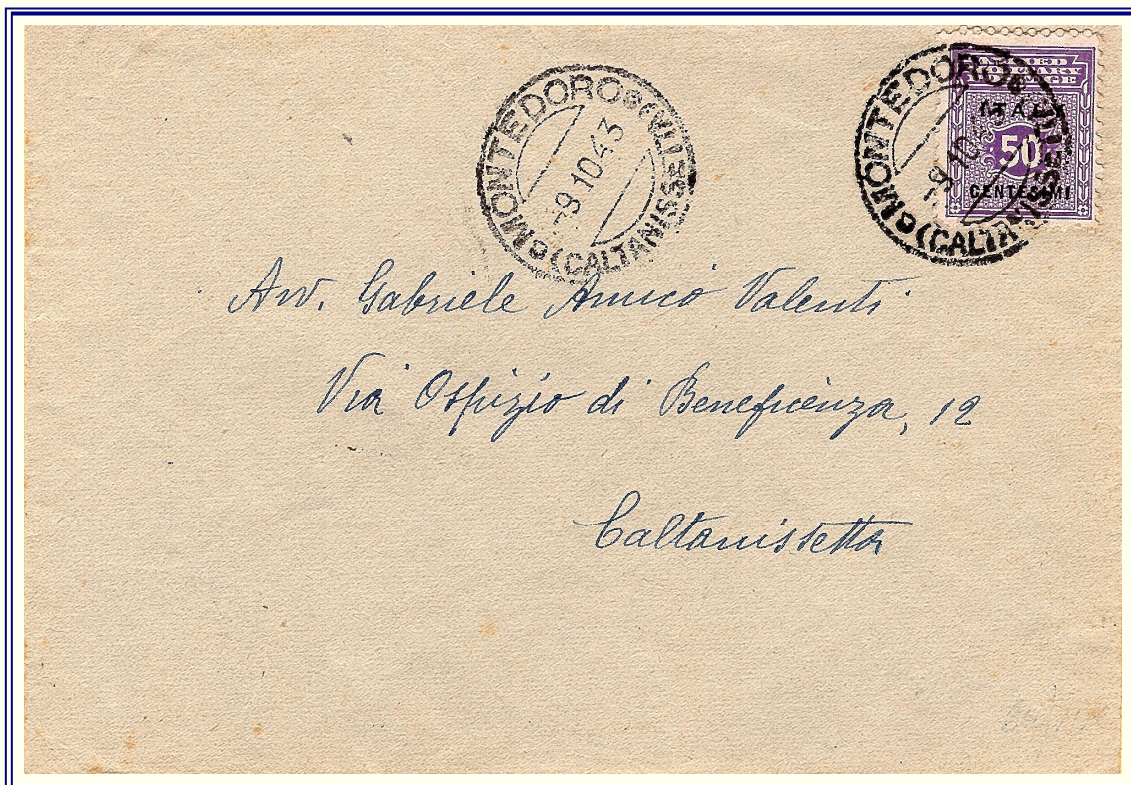 MONTEDORO (CALTANISSETTA)
-9.10.43
MONTEDORO (CALTANISSETTA)
-9.10
ALLIED
MILITARY
POSTAGE
ITALY
50
CENTESIMI
Avv. Gabriele Amico Valenti
Via Ospizio di Beneficenza, 12
Caltanissetta